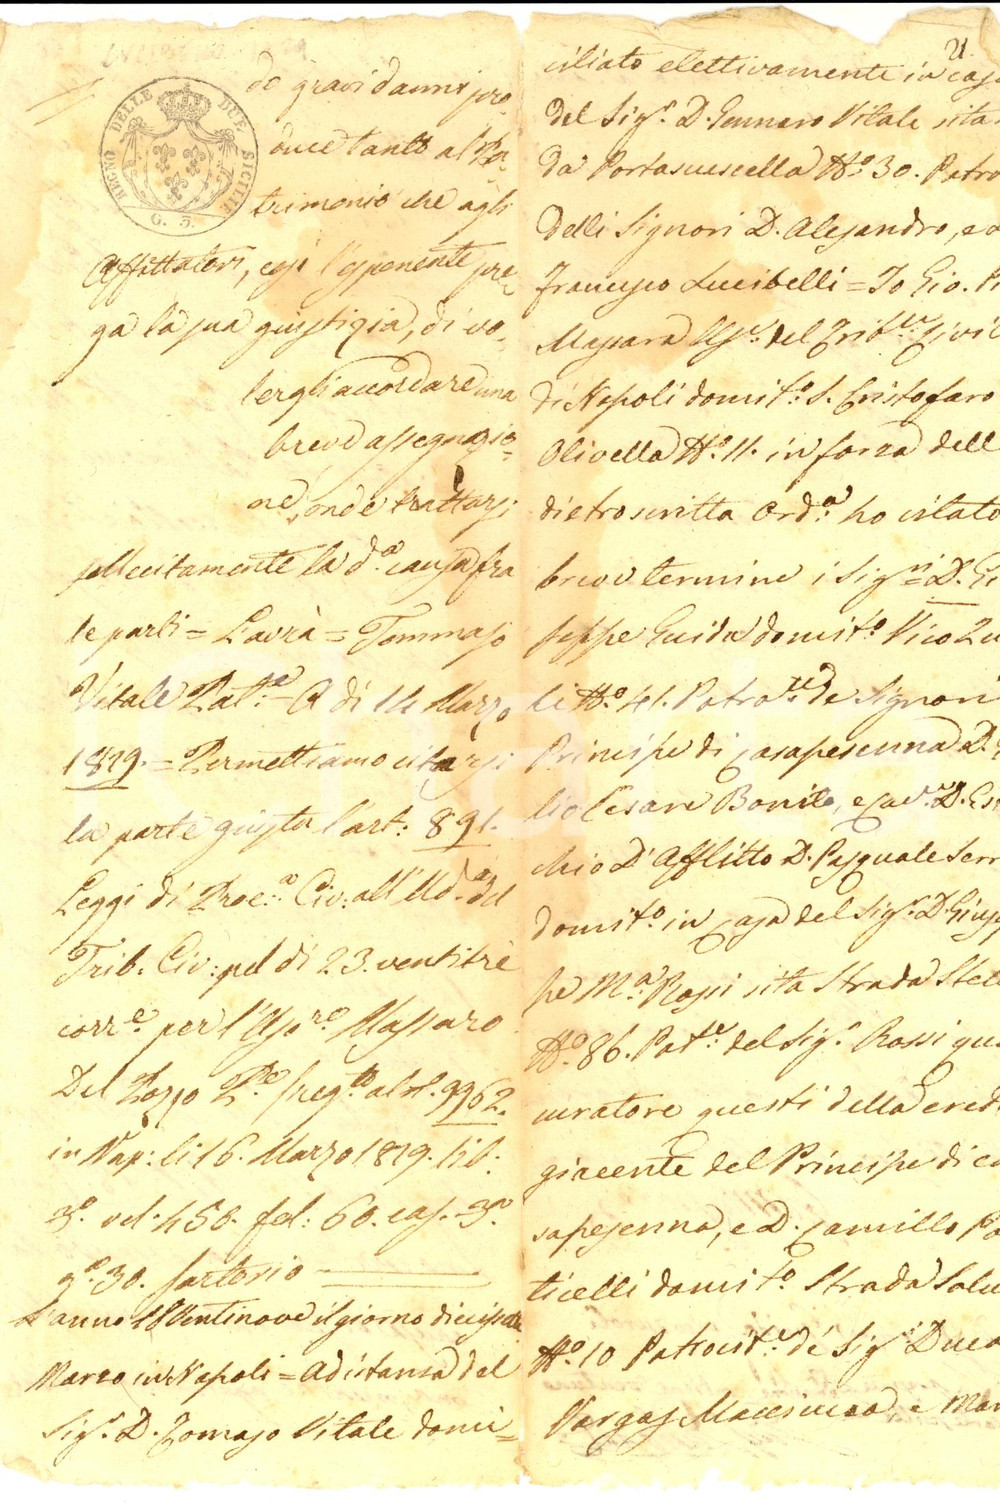 REGNO DELLE DUE SICILIE
G. 3.
do gravi danni pro=
duce tanto al Pa=
trimonio che agli
Affittatori, così l'esponente pre=
ga la sua giustizia, di vo=
lergli accordare una
breve assegnazio=
ne, onde trattarsi
sollecitamente la d.a causa fra
le parti = Lavrà = Tommaso
Vitale Pat.e = A dì 14 Marzo
1829. = Permettiamo citarsi
la parte giusta l'art: 891.
Leggi di Proc.a Civ: all'Ud.a del
Trib. Civ: pel dì 23. ventitrè
corr.e per l'Usc.re Massaro
Del Pozzo P.te Reg.to al n.o 9962.
in Nap: li 16. Marzo 1829. lib.
3.o vol. 450. fol: 60. cas. 3.a
g.a 30. Sartorio
L'anno 18Ventinove il giorno dicissette
Marzo in Napoli = Ad istanza del
Sig.r D. Tomaso Vitale domi=
21
ciliato elettivamente in casa
del Sig.r D. Gennaro Vitale sita
da Portasciuscella N.o 30. Patro
delli Signori D. Alejandro, e
Francesco Lucibelli = Io Gio.
Massara Us.re del Trib.le Civi
di Napoli domit.o S. Cristofaro
Olivella N.o 11. in forza dell
dietroscritta Ord.a ho citato
breve termine i Sig.ri D. Gi
seppe Guida domit.o Vico Zu
li N.o 41. Patro.re de Signori
Principe di Casapesenna D.
lio Cesare Bonito, e Cav.r D. Eu
chio D'Afflitto D. Pasquale Serr
domit.o in Casa del Sig.r D. Giusep
pe M.a Rossi sita Strada Stel
N.o 86. Pat.e del Sig.r Rossi qua
curatore questi della ered
giacente del Principe di Ca
sapesenna, e D. Camillo Pa
ticelli domit.o Strada Salu
N.o 10 Patrocit.e de' Sig.i Duca
Vargas Macciucca, e Mar